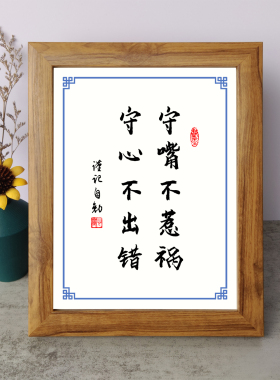 守嘴不惹祸
守心不出错
谨记自勉